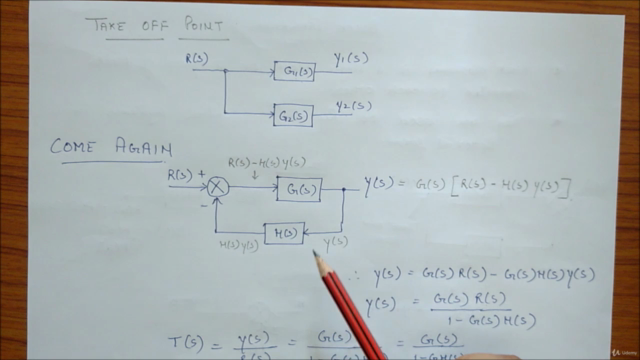 TAKE OFF POINT
R(s)
G1(s)
Y1(s)
G2(s)
Y2(s)
COME AGAIN
R(s)-H(s)Y(s)
R(s) +
-
G(s)
Y(s) = G(s) [R(s) - H(s) Y(s)]
H(s)
H(s)Y(s)
Y(s)
∴ Y(s) = G(s) R(s) - G(s)H(s)Y(s)
Y(s) = G(s) R(s)
1 - G(s) H(s)
T(s) = Y(s) = G(s) = G(s)